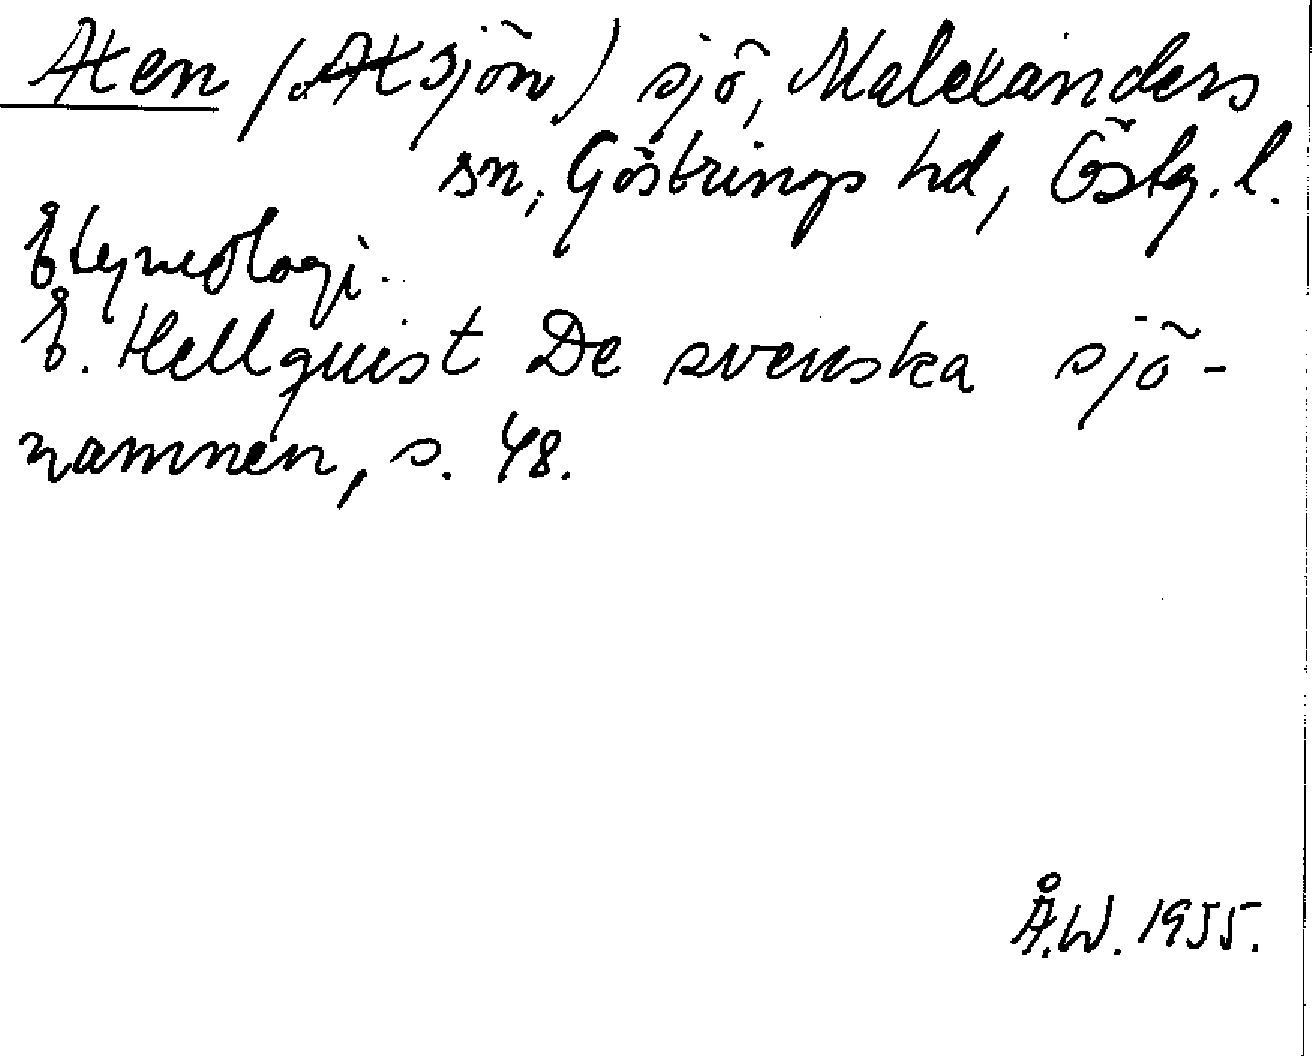 Aten (Atsjön) sjö, Malexanders
sn, Göstrings hd, Östg. l.
Etymologi.
E. Hellquist De svenska sjö-
namnen, s. 48.
Å.W. 1955.